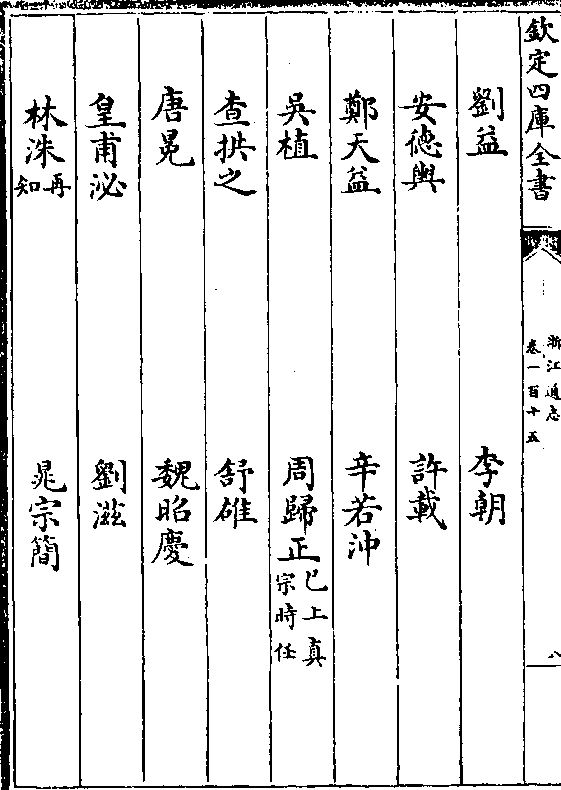 欽定四庫全書
浙江通志
卷一百十五
八
劉益 李朝
安德輿 許載
鄭天益 辛若沖
吳植 周歸正已上真宗時任
查拱之 舒雄
唐晃 魏昭慶
皇甫泌 劉滋
林洙再知 晁宗簡